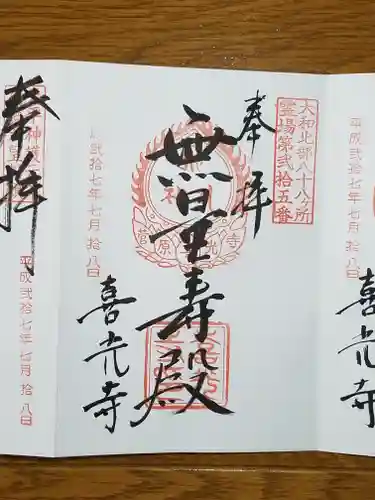 奉拝
大和北部八十八ヶ所
霊場第弐拾五番
奉拝
無量寿殿
菅原 喜光寺
弐拾七年七月拾八日
喜光寺
平成弐拾七年七月拾八日
喜光寺
平成弐拾七年七月拾八日